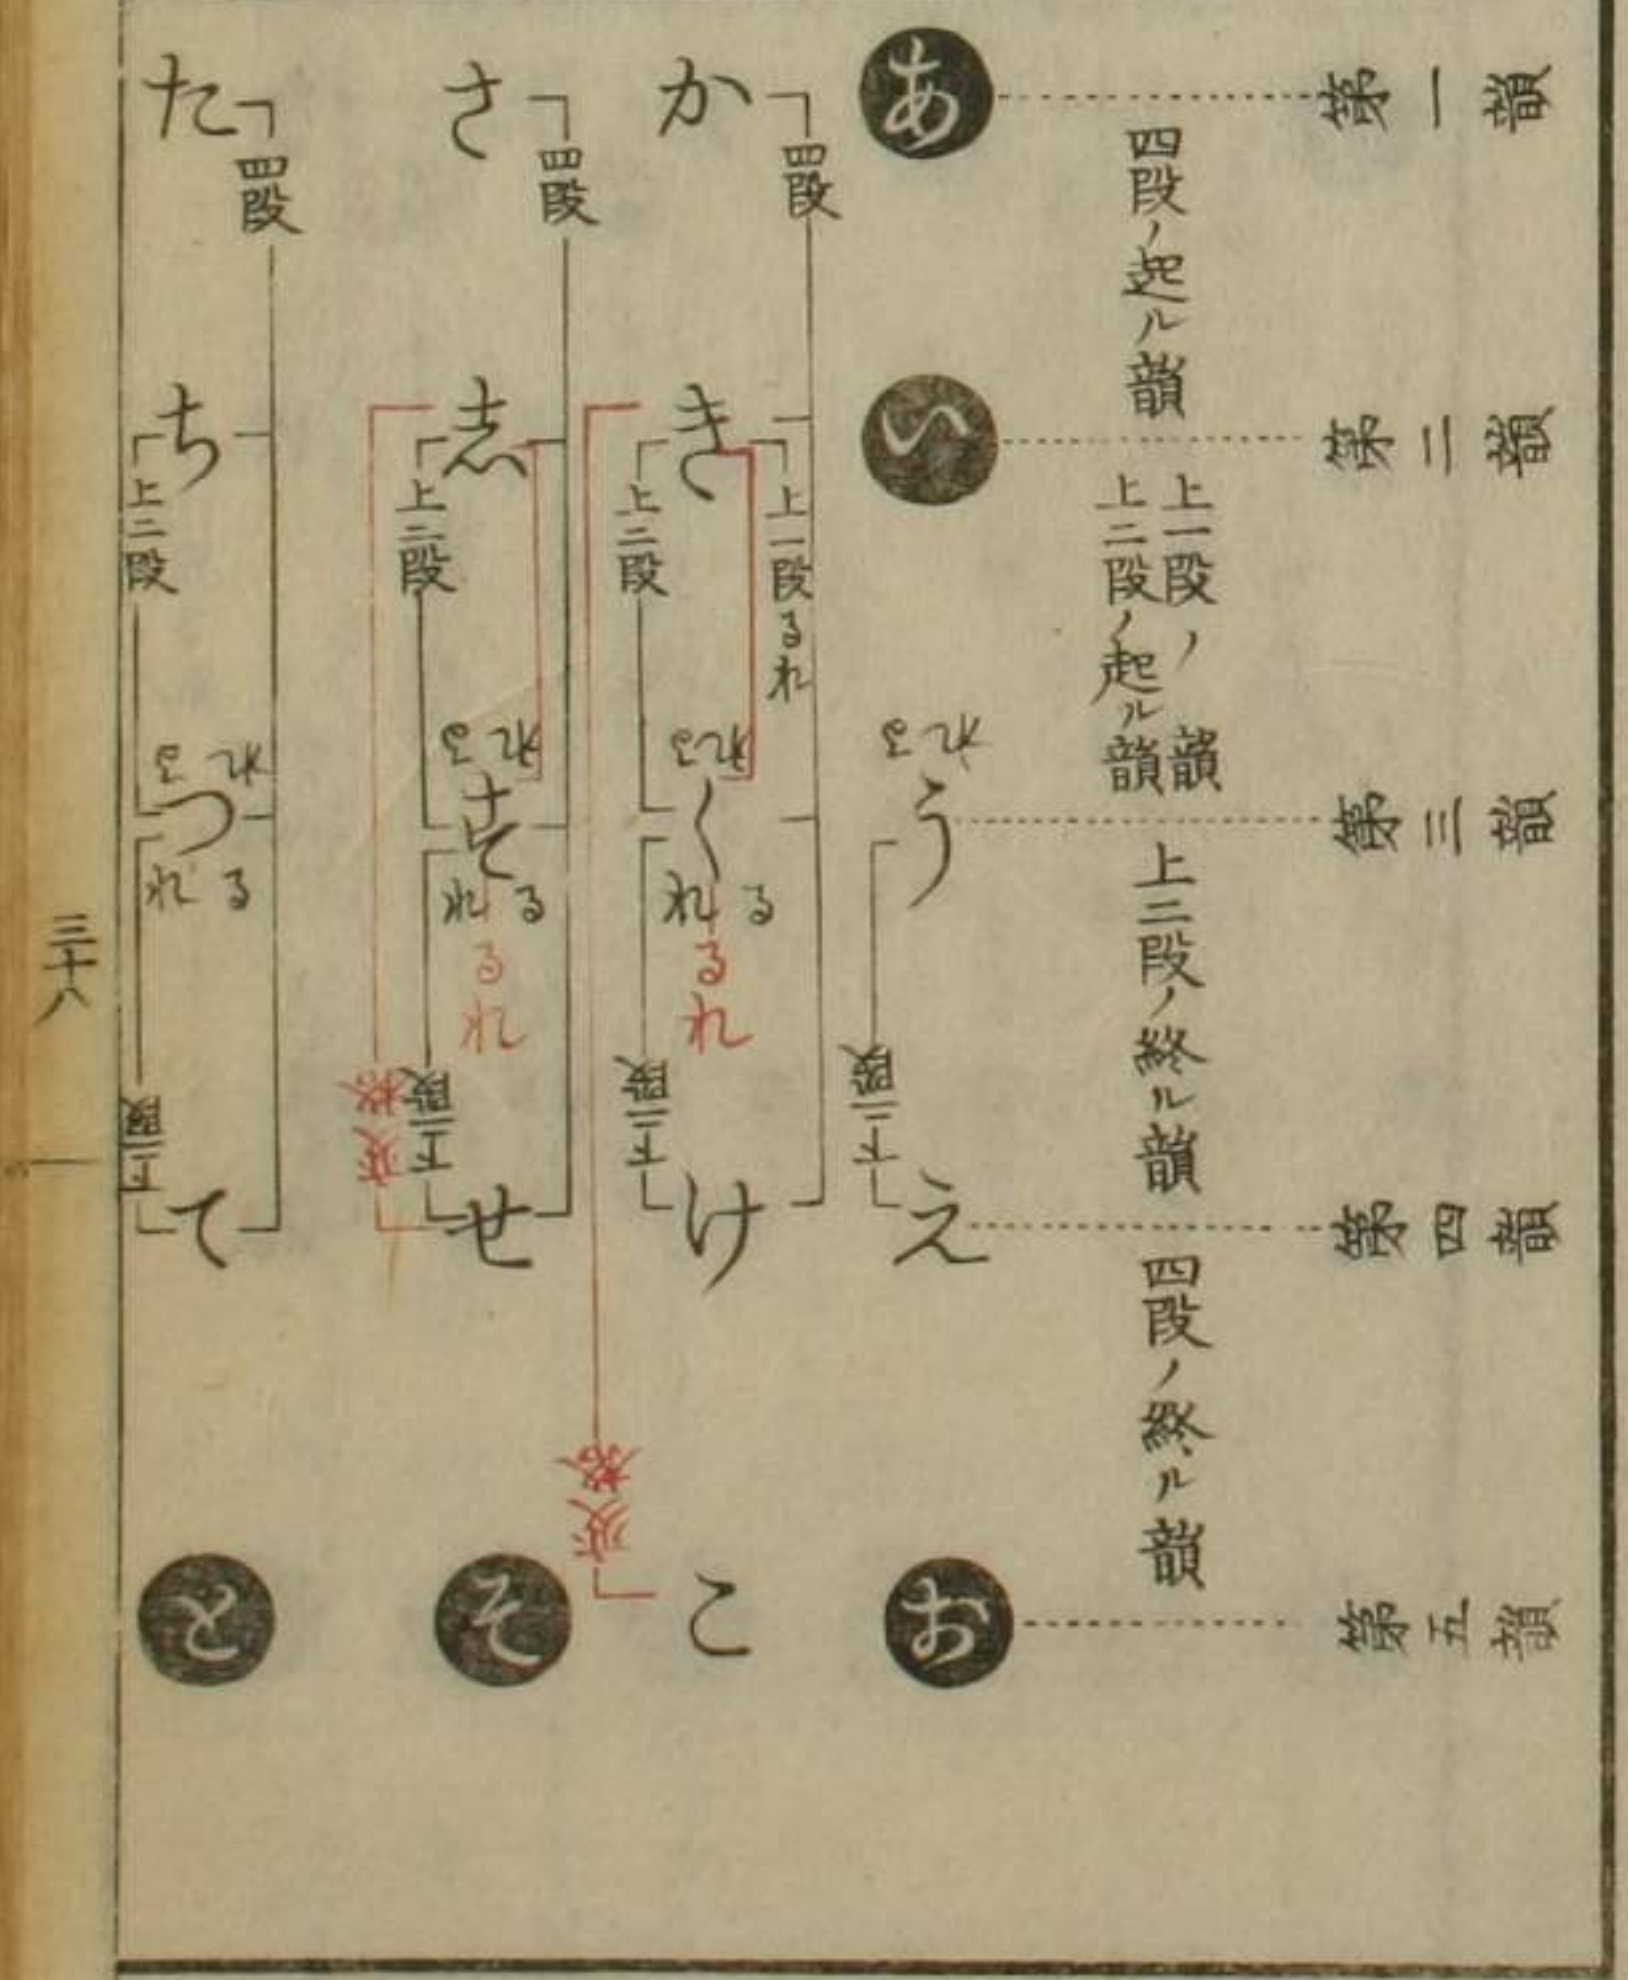 第一韻
第二韻
第三韻
第四韻
第五韻
四段ノ起ル韻
上一段ノ韻
上二段ノ起ル韻
上二段ノ終ル韻
四段ノ終ル韻
あ
い
う
るれ
下二段
え
お
か
四段
き
上一段るれ
上二段
く
るれ
るれ
るれ
下二段
け
こ
変格
さ
四段
志
上二段
す
るれ
るれ
るれ
下二段
せ
変格
そ
た
四段
ち
上二段
つ
るれ
るれ
下二段
て
と
三十八